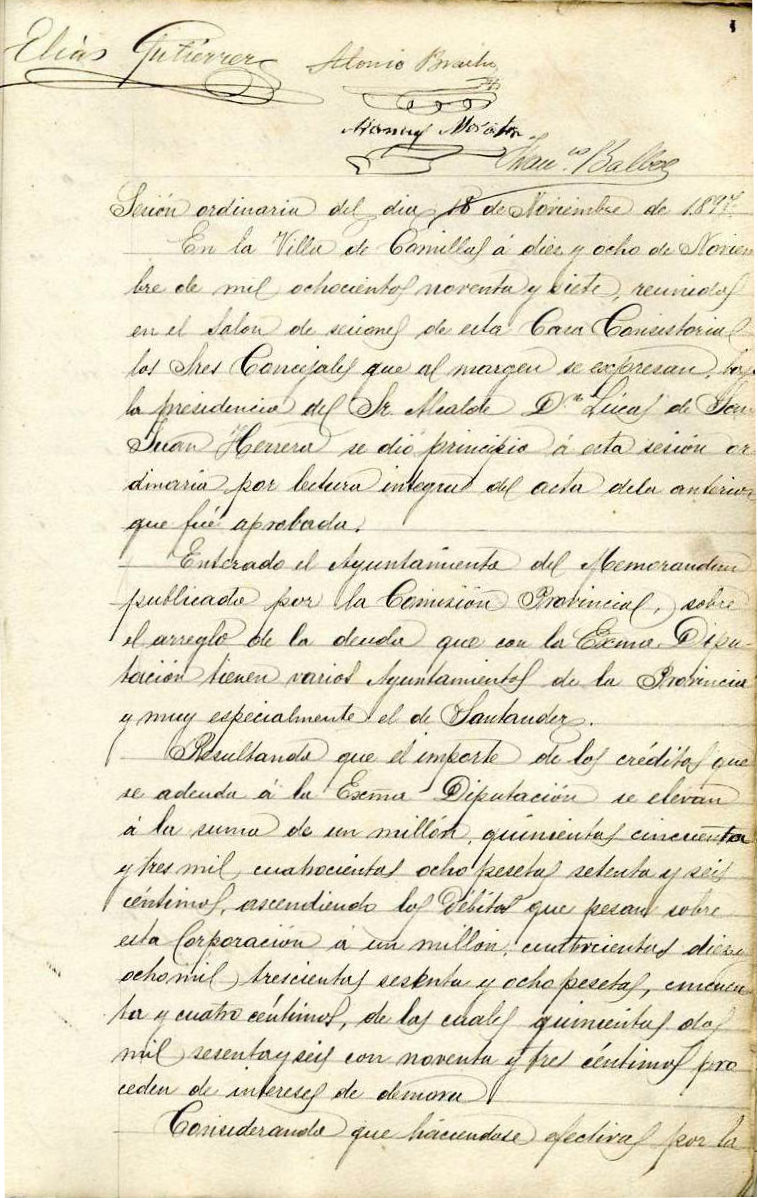 1
Elías Gutierrez
Alonso Bracho
Manuel Morante
Fran.co Balboa
Sesión ordinaria del dia 18 de Noviembre de 1897.
En la Villa de Comillas á diez y ocho de Noviem
bre de mil ochocientos noventa y siete, reunidos
en el Salon de sesiones de esta Casa Consistorial
los Sres Concejales que al margen se expresan, bajo
la presidencia del Sr. Alcalde D.n Lúcas de San
Juan Herrera se dió principio á esta sesión or
dinaria por lectura integra del acta dela anterior
que fué aprobada.
Enterado el Ayuntamiento del Memorandun
publicado por la Comisión Provincial, sobre
el arreglo de la deuda que con la Exma. Dipu-
tación tienen varios Ayuntamientos de la Provincia
y muy especialmente el de Santander.
Resultando que el importe de los créditos que
se adeuda á la Exma Diputación se elevan
á la suma de un millón, quinientas cincuenta
y tres mil cuatrocientas ocho pesetas setenta y seis
céntimos, ascendiendo los débitos que pesan sobre
esta Corporación á un millón, cuatrocientas diez y
ocho mil trescientas sesenta y ocho pesetas, cincuen
ta y cuatro céntimos, de las cuales quinientas dos
mil sesenta y seis con noventa y tres céntimos pro
ceden de intereses de demora.
Considerando que haciendose efectivas por la